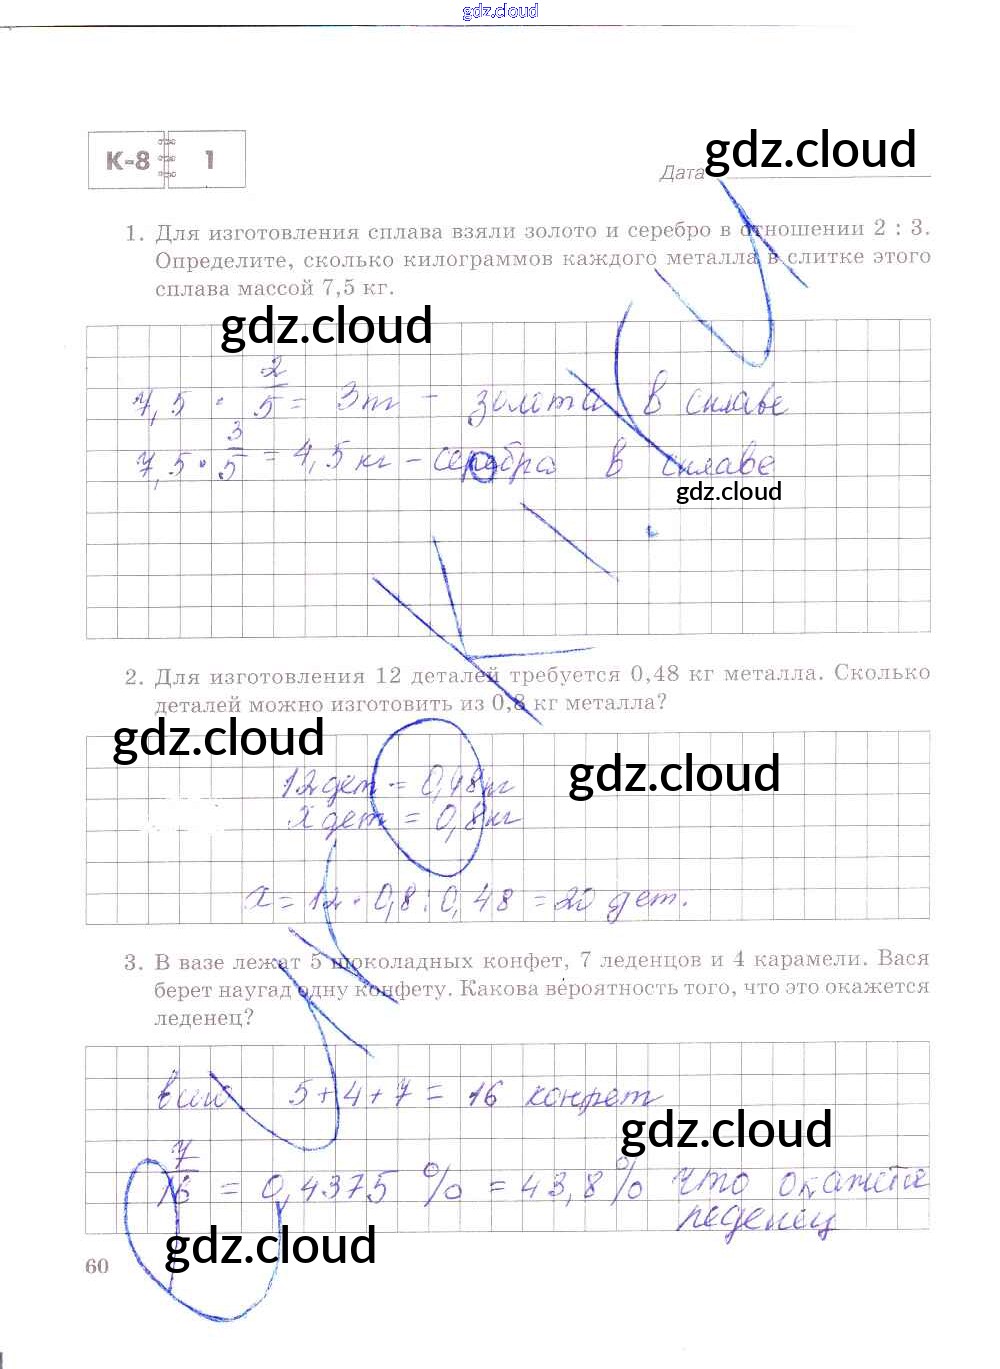 gdz.cloud
К-8 1
gdz.cloud
Дата
1. Для изготовления сплава взяли золото и серебро в отношении 2 : 3.
Определите, сколько килограммов каждого металла в слитке этого
сплава массой 7,5 кг.
gdz.cloud
7,5 · 2/5 = 3 т - золота в сплаве
7,5 · 3/5 = 4,5 кг - серебра в сплаве
gdz.cloud
2. Для изготовления 12 деталей требуется 0,48 кг металла. Сколько
деталей можно изготовить из 0,8 кг металла?
gdz.cloud
gdz.cloud
12 дет = 0,48 кг
х дет = 0,8 кг
х = 12 · 0,8 : 0,48 = 20 дет.
3. В вазе лежат 5 шоколадных конфет, 7 леденцов и 4 карамели. Вася
берет наугад одну конфету. Какова вероятность того, что это окажется
леденец?
5 + 4 + 7 = 16 конфет
gdz.cloud
7/16 = 0,4375 % = 43,8 % что окажется
леденец
gdz.cloud
60